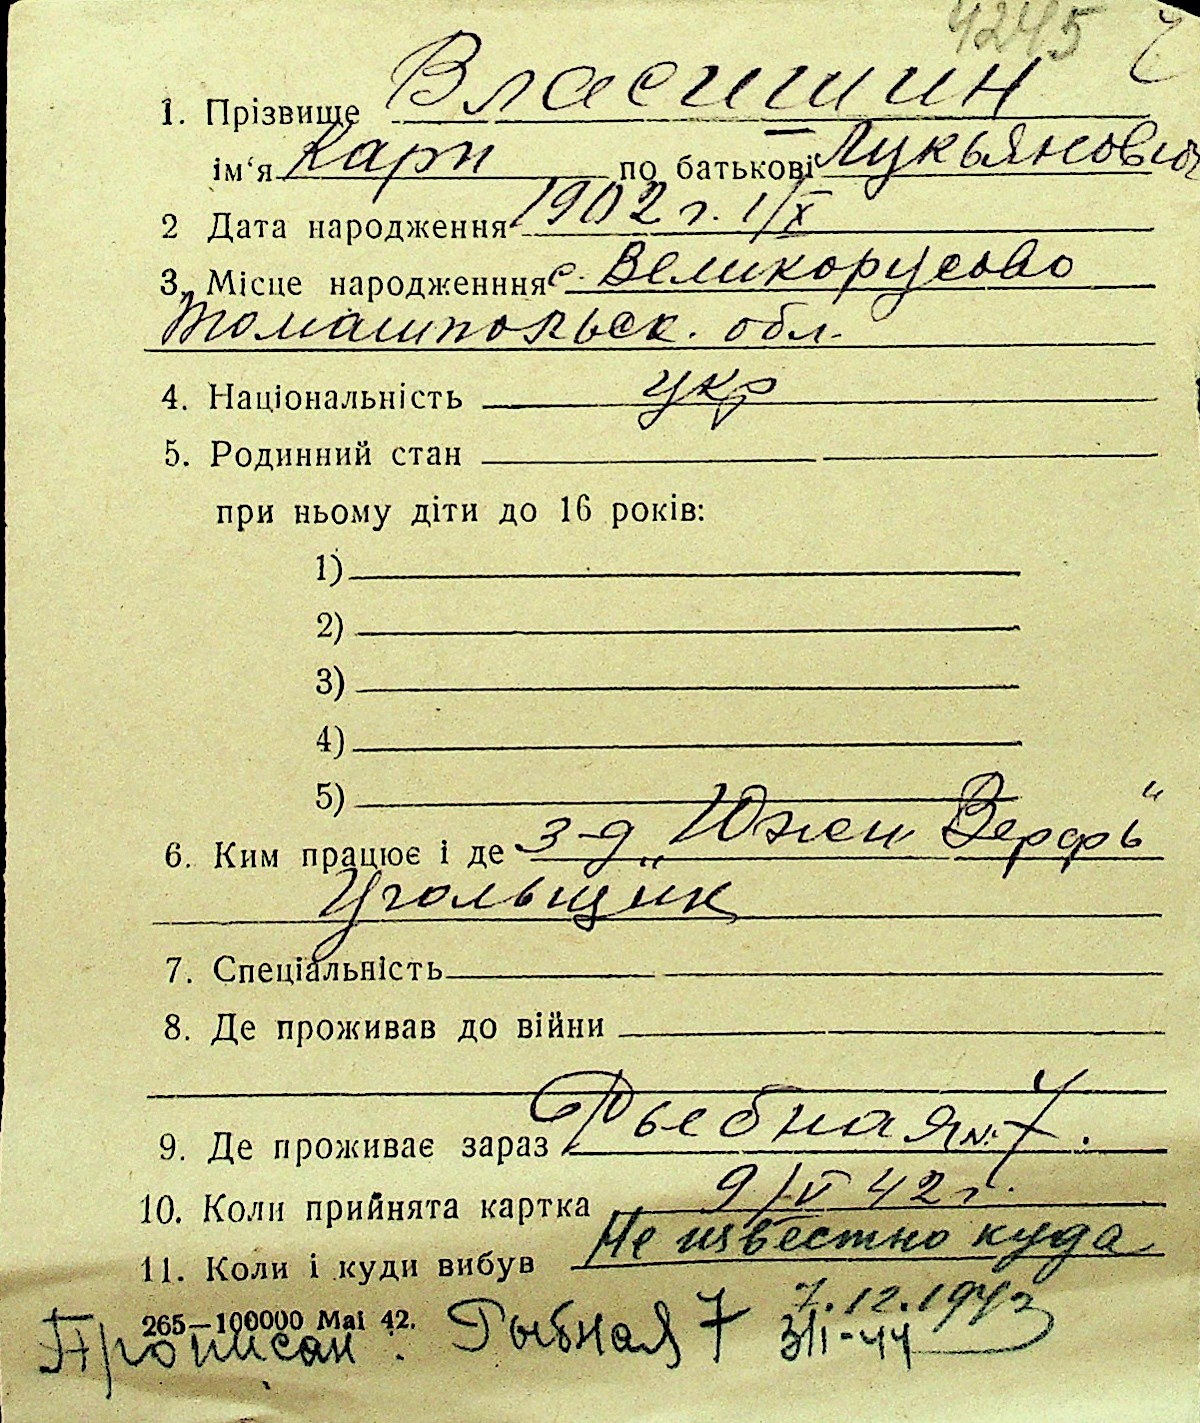 4245
1. Прізвище Власишин
ім‘я Карп по батькові Лукьянович
2 Дата народження 1902 г. 1/X
3. Місце народженння с. Великорусово
Томашпольск. обл.
4. Національність укр
5. Родинний стан
при ньому діти до 16 років:
1)
2)
3)
4)
5)
6. Ким працює і де з-д „Южн Верфь“
Угольщик
7. Спеціальність
8. Де проживав до війни
9. Де проживає зараз Рыбная № 7.
10. Коли прийнята картка 9/V 42 г.
11. Коли і куди вибув Не известно куда
7.12.1943
265—100000 Mai 42.
Прописан. Рыбная 7 3/II-44